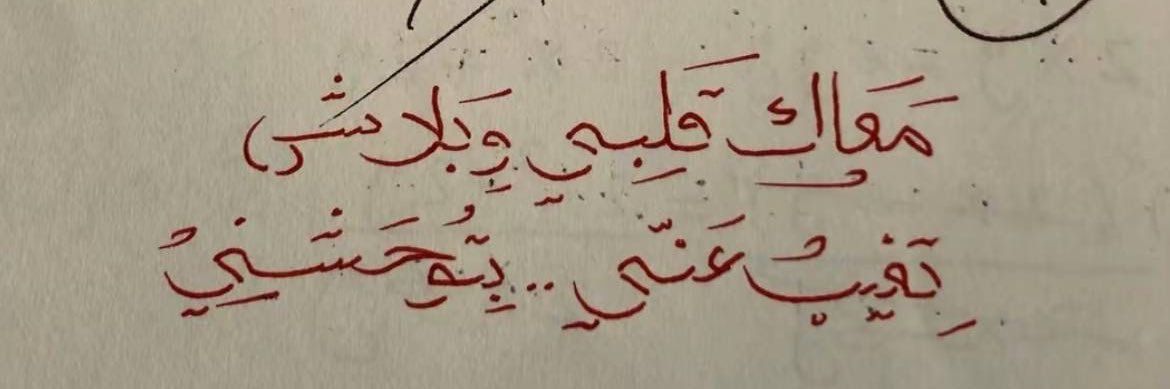 مَعَاكِ قَلبِي وَبَلاش
تِغيبُ عَنّي .. بِتُوحَشنِي